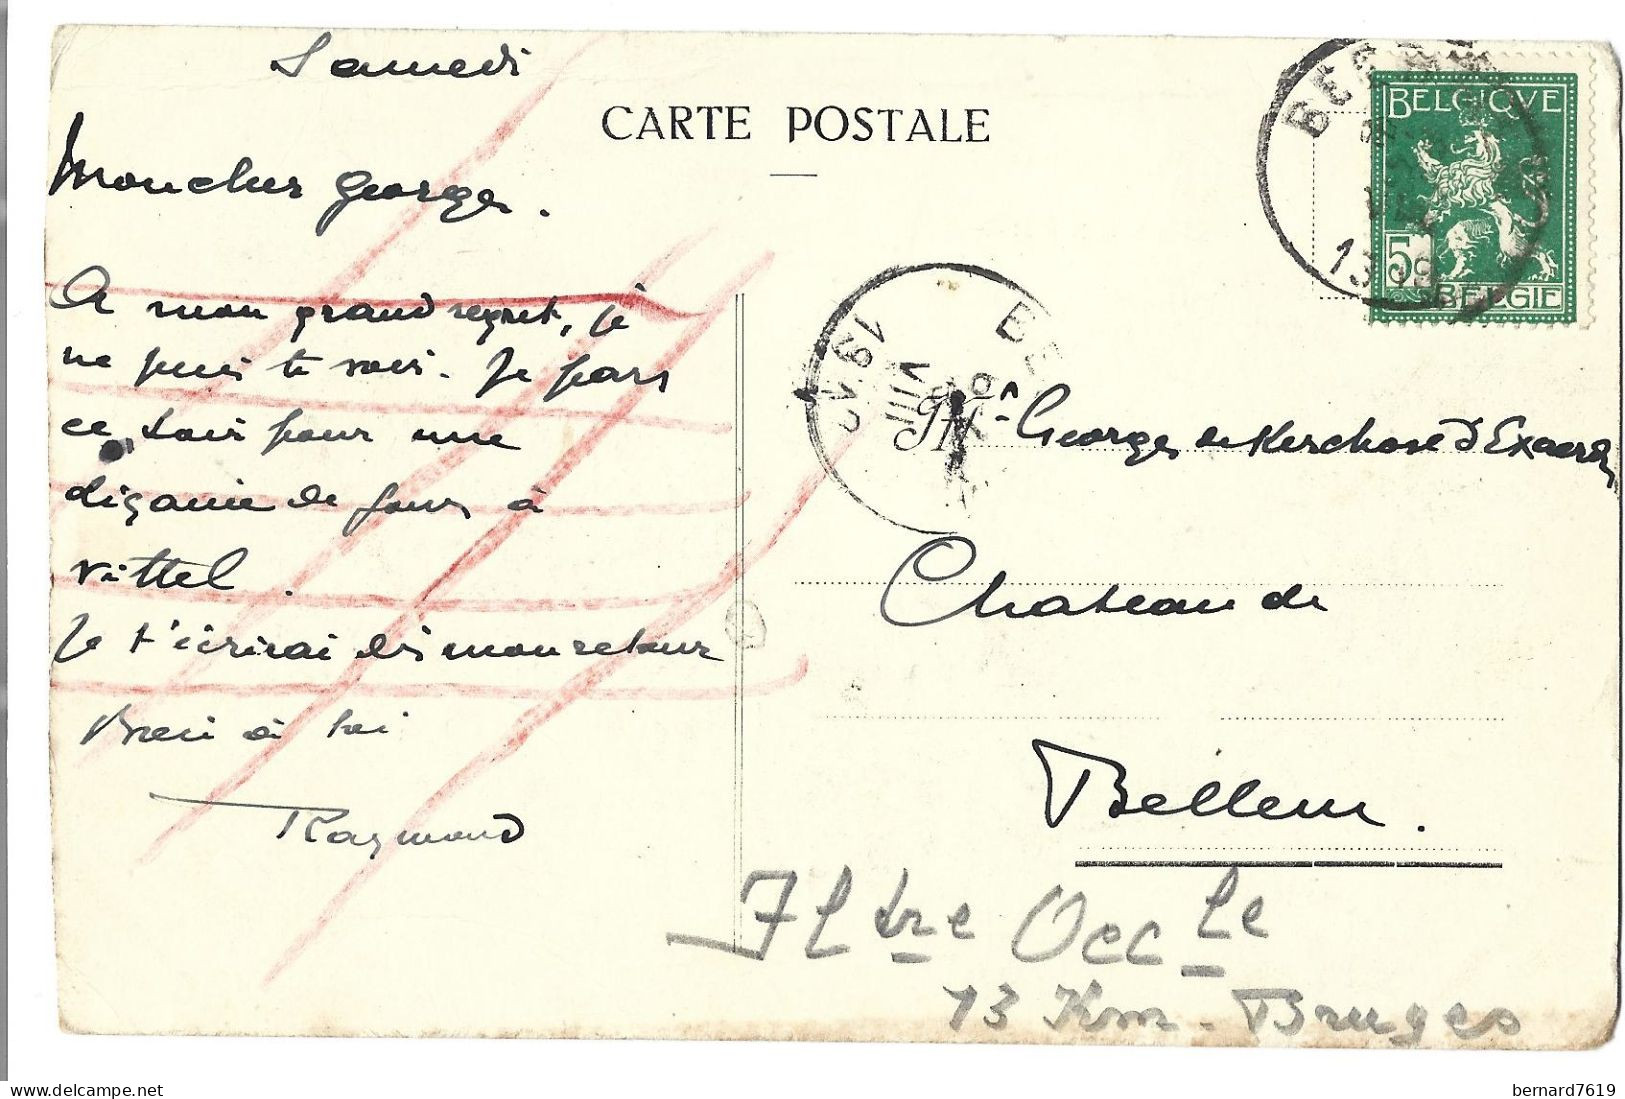 Samedi
CARTE POSTALE
Mon cher George.
A mon grand regret, je
ne puis te voir. Je pars
ce soir pour une
dizaine de jours à
Vittel.
Je t'écrirai dès mon retour
Bien à toi
Raymond
BELGIQUE
5
BELGIE
13
19
VIII
BE
Mr George de Kerchove d'Exaerde
Chateau de
Bellem.
Fl tre Occ le
13 Km. Bruges
bernard7619